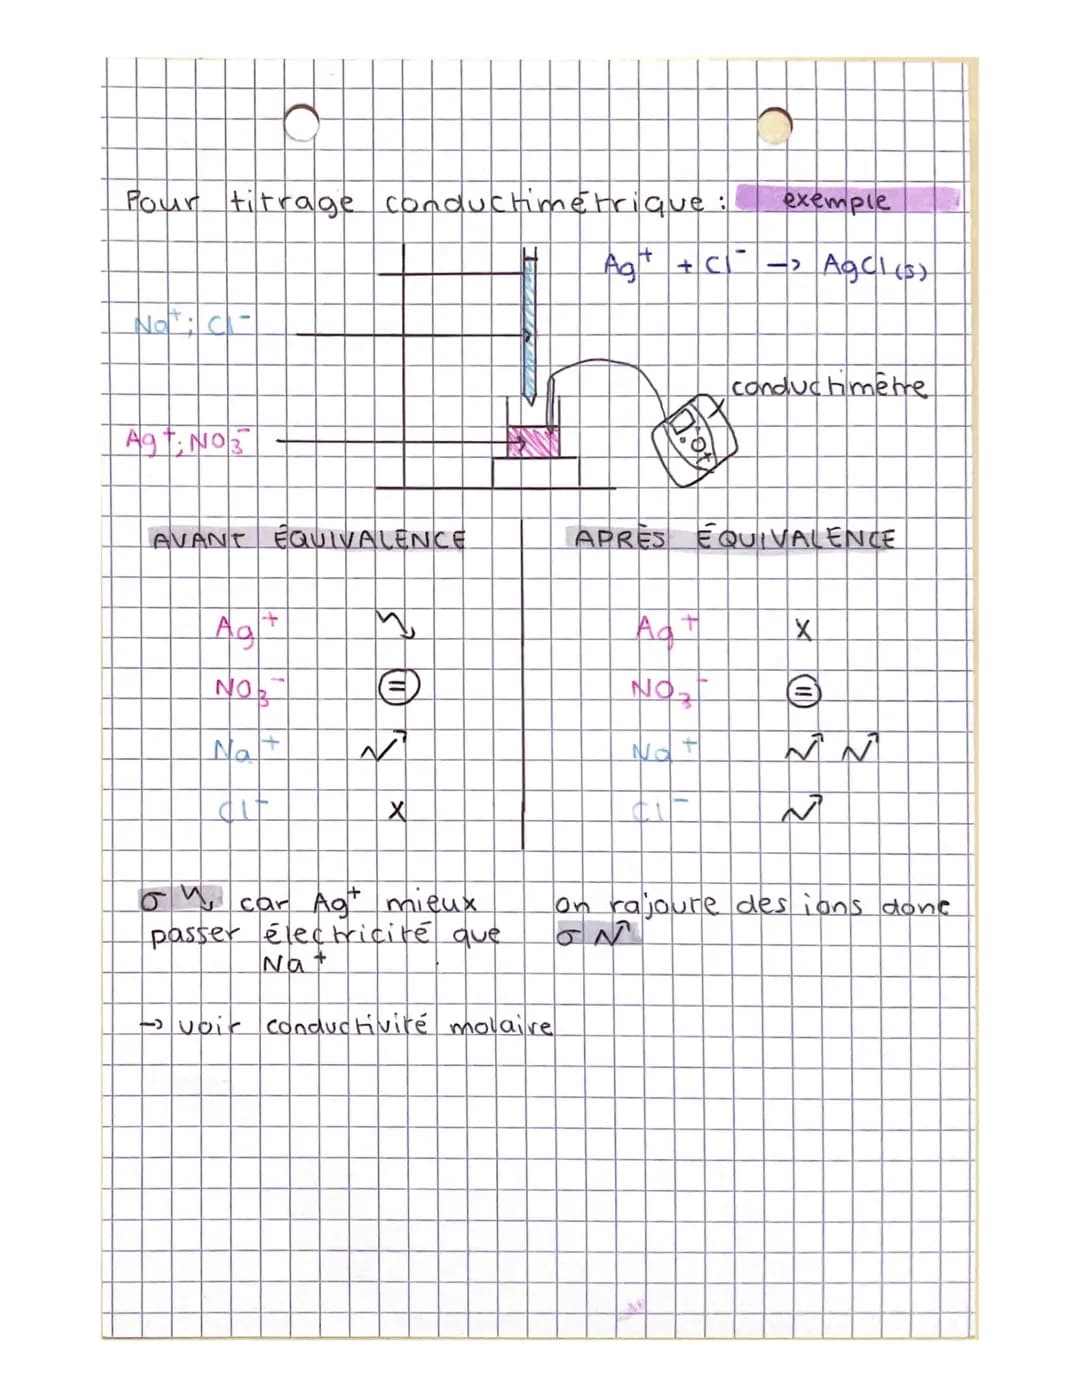 Pour titrage conductimétrique : exemple
Ag⁺ + Cl⁻ → AgCl(s)
Na⁺; Cl⁻
conductimètre
Ag⁺; NO₃⁻
AVANT ÉQUIVALENCE
APRÈS ÉQUIVALENCE
Ag⁺ ↘ Ag⁺ X
NO₃⁻ = NO₃⁻ =
Na⁺ ↗ Na⁺ ↗ ↗
Cl⁻ X Cl⁻ ↗
σ ↘ car Ag⁺ mieux
passer électricité que
Na⁺
on rajoure des ions donc
σ ↗
→ voir conductivité molaire